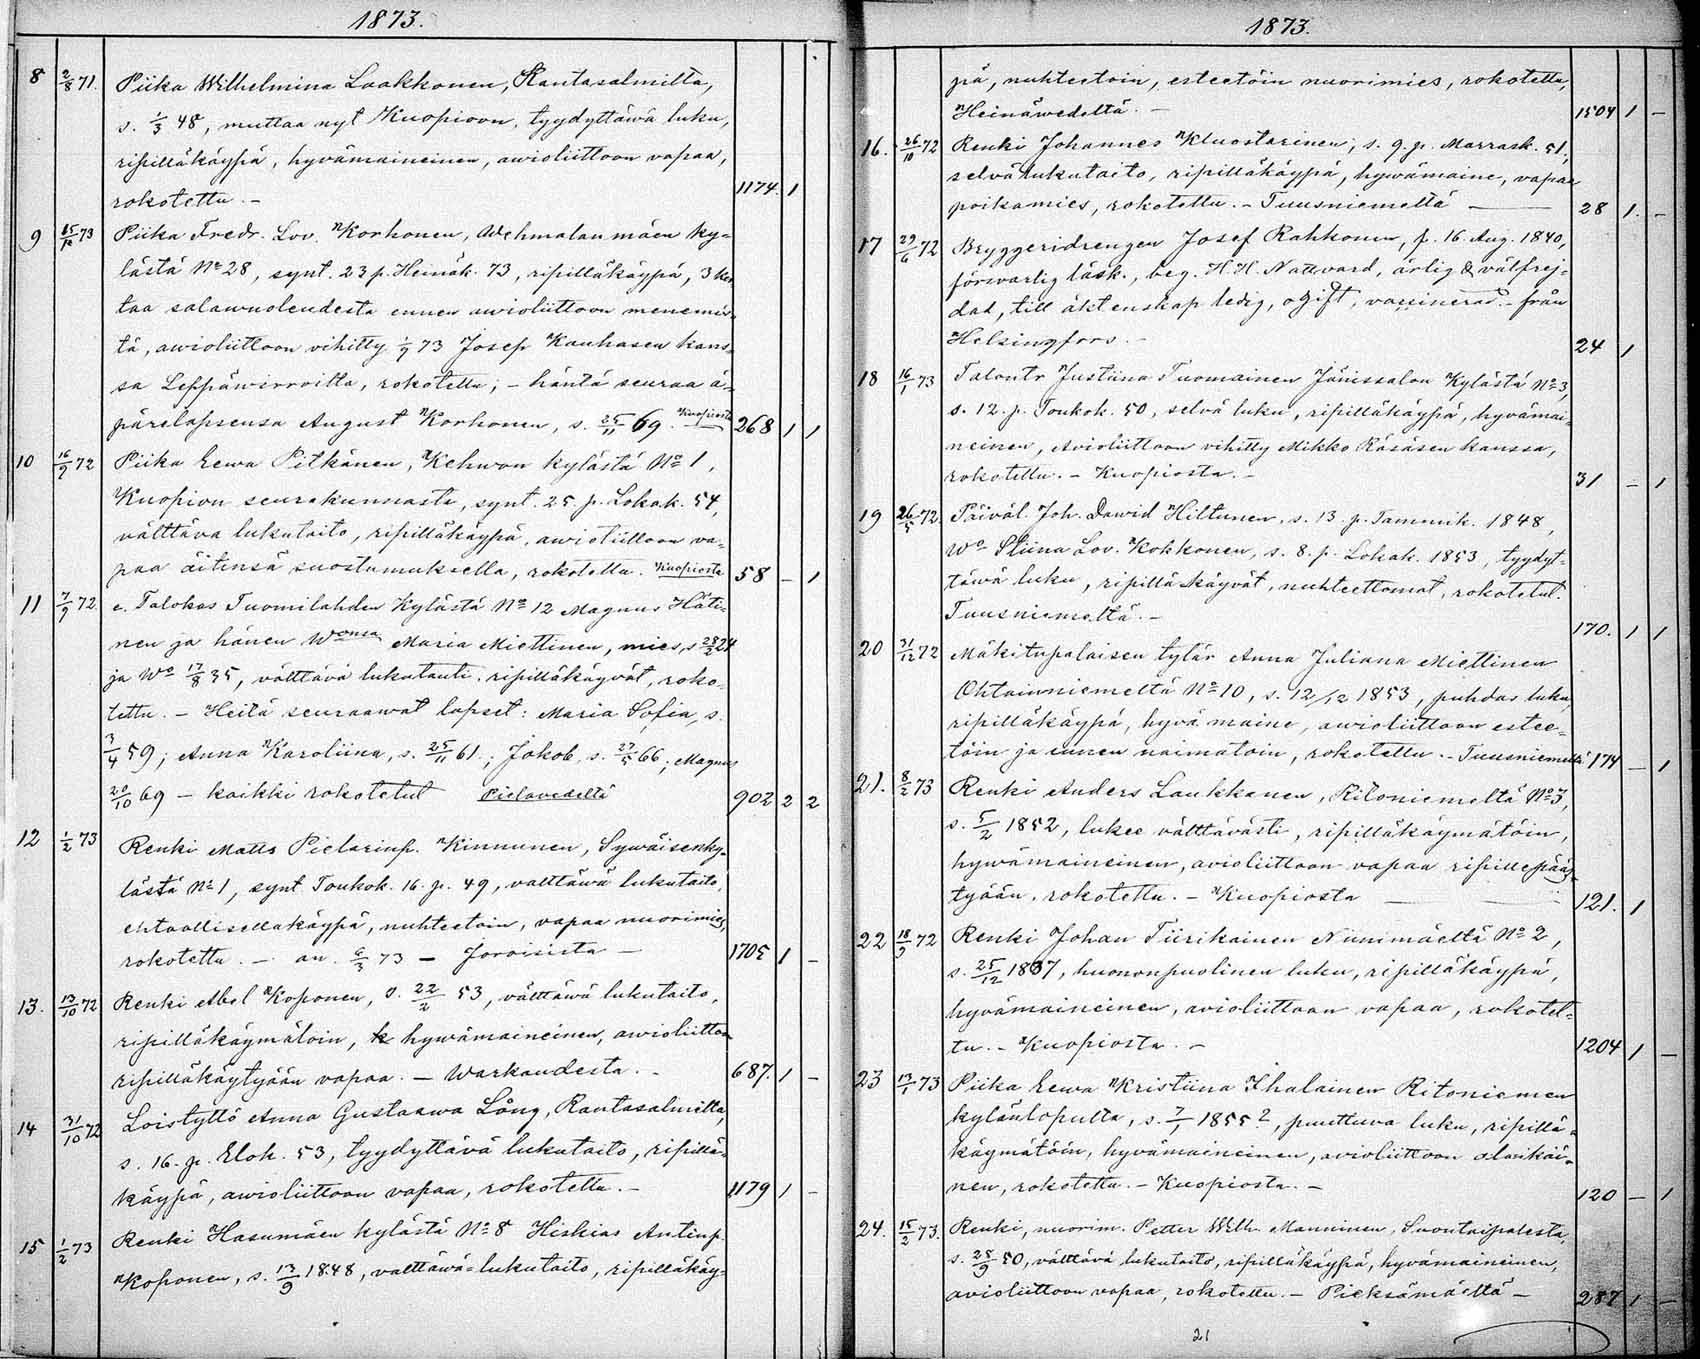 1873.
8 2/8 71. Piika Wilhelmina Laakkonen, Rantasalmilta,
s. 1/3 48, muttaa nyt Kuopioon, tyydyttäwä luku,
ripilläkäypä, hyvämaineinen, awioliittoon vapaa,
rokotettu. - 1174. 1
9 73 Piika Fredr. Lov. Korhonen, Wehmalan mäen ky-
lästä No 28, synt. 23 p. Heinäk. 73, ripilläkäypä, 3 ker
taa salawuolendesta ennen awioliittoon menemis-
tä, awioliittoon vihitty 73 Josep Kauhasen kans-
sa Leppäwirroilta, rokotettu; - häntä seuraa ä-
pärelapsensa August Korhonen, s. 25/11 69. Kuopiosta 268 1 1
10 16/9 72 Piika Eewa Pitkänen, Kehwon kylästä No 1,
Kuopion seurakunnasta, synt. 25 p. Lokak. 54,
välttäva lukutaito, ripilläkäypä, awioliittoon va-
paa äitinsä suostumuksella, rokotettu. Kuopiosta 58 - 1
11 7/9 72. e. Talokas Tuomilahden Kylästä No 12 Magnus Häti-
nen ja hänen Wonsa Maria Miettinen, mies, s 24
ja Wo 17/8 35, välttävä lukutauti. ripilläkäyvät, roko-
tettu. - Heitä seuraawat lapset: Maria Sofia, s.
3/4 59; Anna Karoliina, s. 25/11 61.; Jakob, s. 27/5 66; Magnus
20/10 69 - kaikki rokotetut Pielavedeltä 902 2 2
12 1/2 73 Renki Matts Pielarinp. Kinnunen, Sywäisenky-
lästä No 1, synt. Toukok. 16. p. 49, valttäwä lukutaito,
ehtoollisellakäypä, nuhteetoin, vapaa nuorimies,
rokotettu. - an. 6/3 73 - Joroisista - 1705 1 -
13. 13/10 72 Renki Abel Koponen, s. 22/2 53, välttäwä lukutaito,
ripilläkäymätoin, hywämaineinen, awioliittoon
ripilläkäytyään vapaa. - Warkaudesta. - 687. 1 -
14 31/10 72 Loistyttö Anna Gustaawa Lång, Rantasalmilta,
s. 16. p. Elok. 53, tyydyttävä lukutaito, ripillä-
käypä, awioliittoon vapaa, rokotettu. - 1179 1 -
15 1/2 73 Renki Hasumäen kylästä No 8 Hiskias Antinp.
Koponen, s. 13/9 1848, valttäwä-lukutaito, ripilläkäy-
1873.
pä, nuhteetoin, esteetöin nuorimies, rokotettu,
Heinäwedeltä. - 1504 1 -
16. 26/10 72 Renki Johannes Kluostarinen, s. 9. p. Marrask. 51,
selvä lukutaito, ripilläkäypä, hywämaine, vapaa
poikamies, rokotettu. - Tuusniemeltä 28 1. -
17 29/6 72 Bryggeridrengen Josef Rahkonen, f. 16 Aug. 1840,
förswarlig läsk., beg. H. H. Nattvard, ärlig & välfrej-
dad, till äktenskap ledig, ogift, vaccinerad. - från
Helsingfors. - 24 1
18 16/1 73 Talontr Justiina Tuomainen Jänissalon Kylästä No 3,
s. 12. p. Toukok. 50, selvä luku, ripilläkäypä, hyvämai-
neinen, Avioliittoon vihitty Mikko Räsäsen kanssa,
rokotettu. - Kuopiosta. - 31 - 1
19 26/5 72. Päiväl. Joh. Dawid Hiltunen, s. 13. p. Tammik. 1848,
Wo Stiina Lov. Kokkonen, s. 8. p. Lokak. 1853, tyydyt-
täwä luku, ripilläkäyvät, nuhteettomat, rokotetut.
Tuusniemeltä. - 170. 1 1
20 31/12 72 Mäkitupalaisen tytär Anna Juliana Miettinen
Ohtainniemeltä No 10, s. 12/12 1853, puhdas luku,
ripilläkäypä, hyvä maine, awioliittoon estee-
töin ja ennen naimatoin, rokotettu. - Tuusniemeltä 174 - 1
21. 8/2 73 Renki Anders Laukkanen, Ritoniemeltä No 3,
s. 5/2 1852, lukee välttävästi, ripilläkäymätöin,
hywämaineinen, avioliittoon vapaa ripillepääs-
tyään, rokotettu. - Kuopiosta 121. 1
22 18/9 72 Renki Johan Tiirikainen Niinimäeltä No 2,
s. 25/12 1837, huononpuolinen luku, ripilläkäypä,
hyvämaineinen, avioliittoon vapaa, rokotet-
tu. - Kuopiosta. - 1204 1 -
23 13/1 73 Piika Eewa Kristiina Ihalainen Ritoniemen
kylänlopulta, s. 7/1 1855?, puuttuva luku, ripillä-
käymätöin, hyvämaineinen, avioliittoon alaikäi-
nen, rokotettu. - Kuopiosta. - 120 - 1
24. 15/2 73. Renki, nuorim. Petter Wilh. Manninen, Suontaipaleesta,
s. 25/9 50, välttävä lukutaito, ripilläkäypä, hyvämaineinen,
avioliittoon vapaa, rokotettu. - Pieksämäeltä - 287 1 -
21